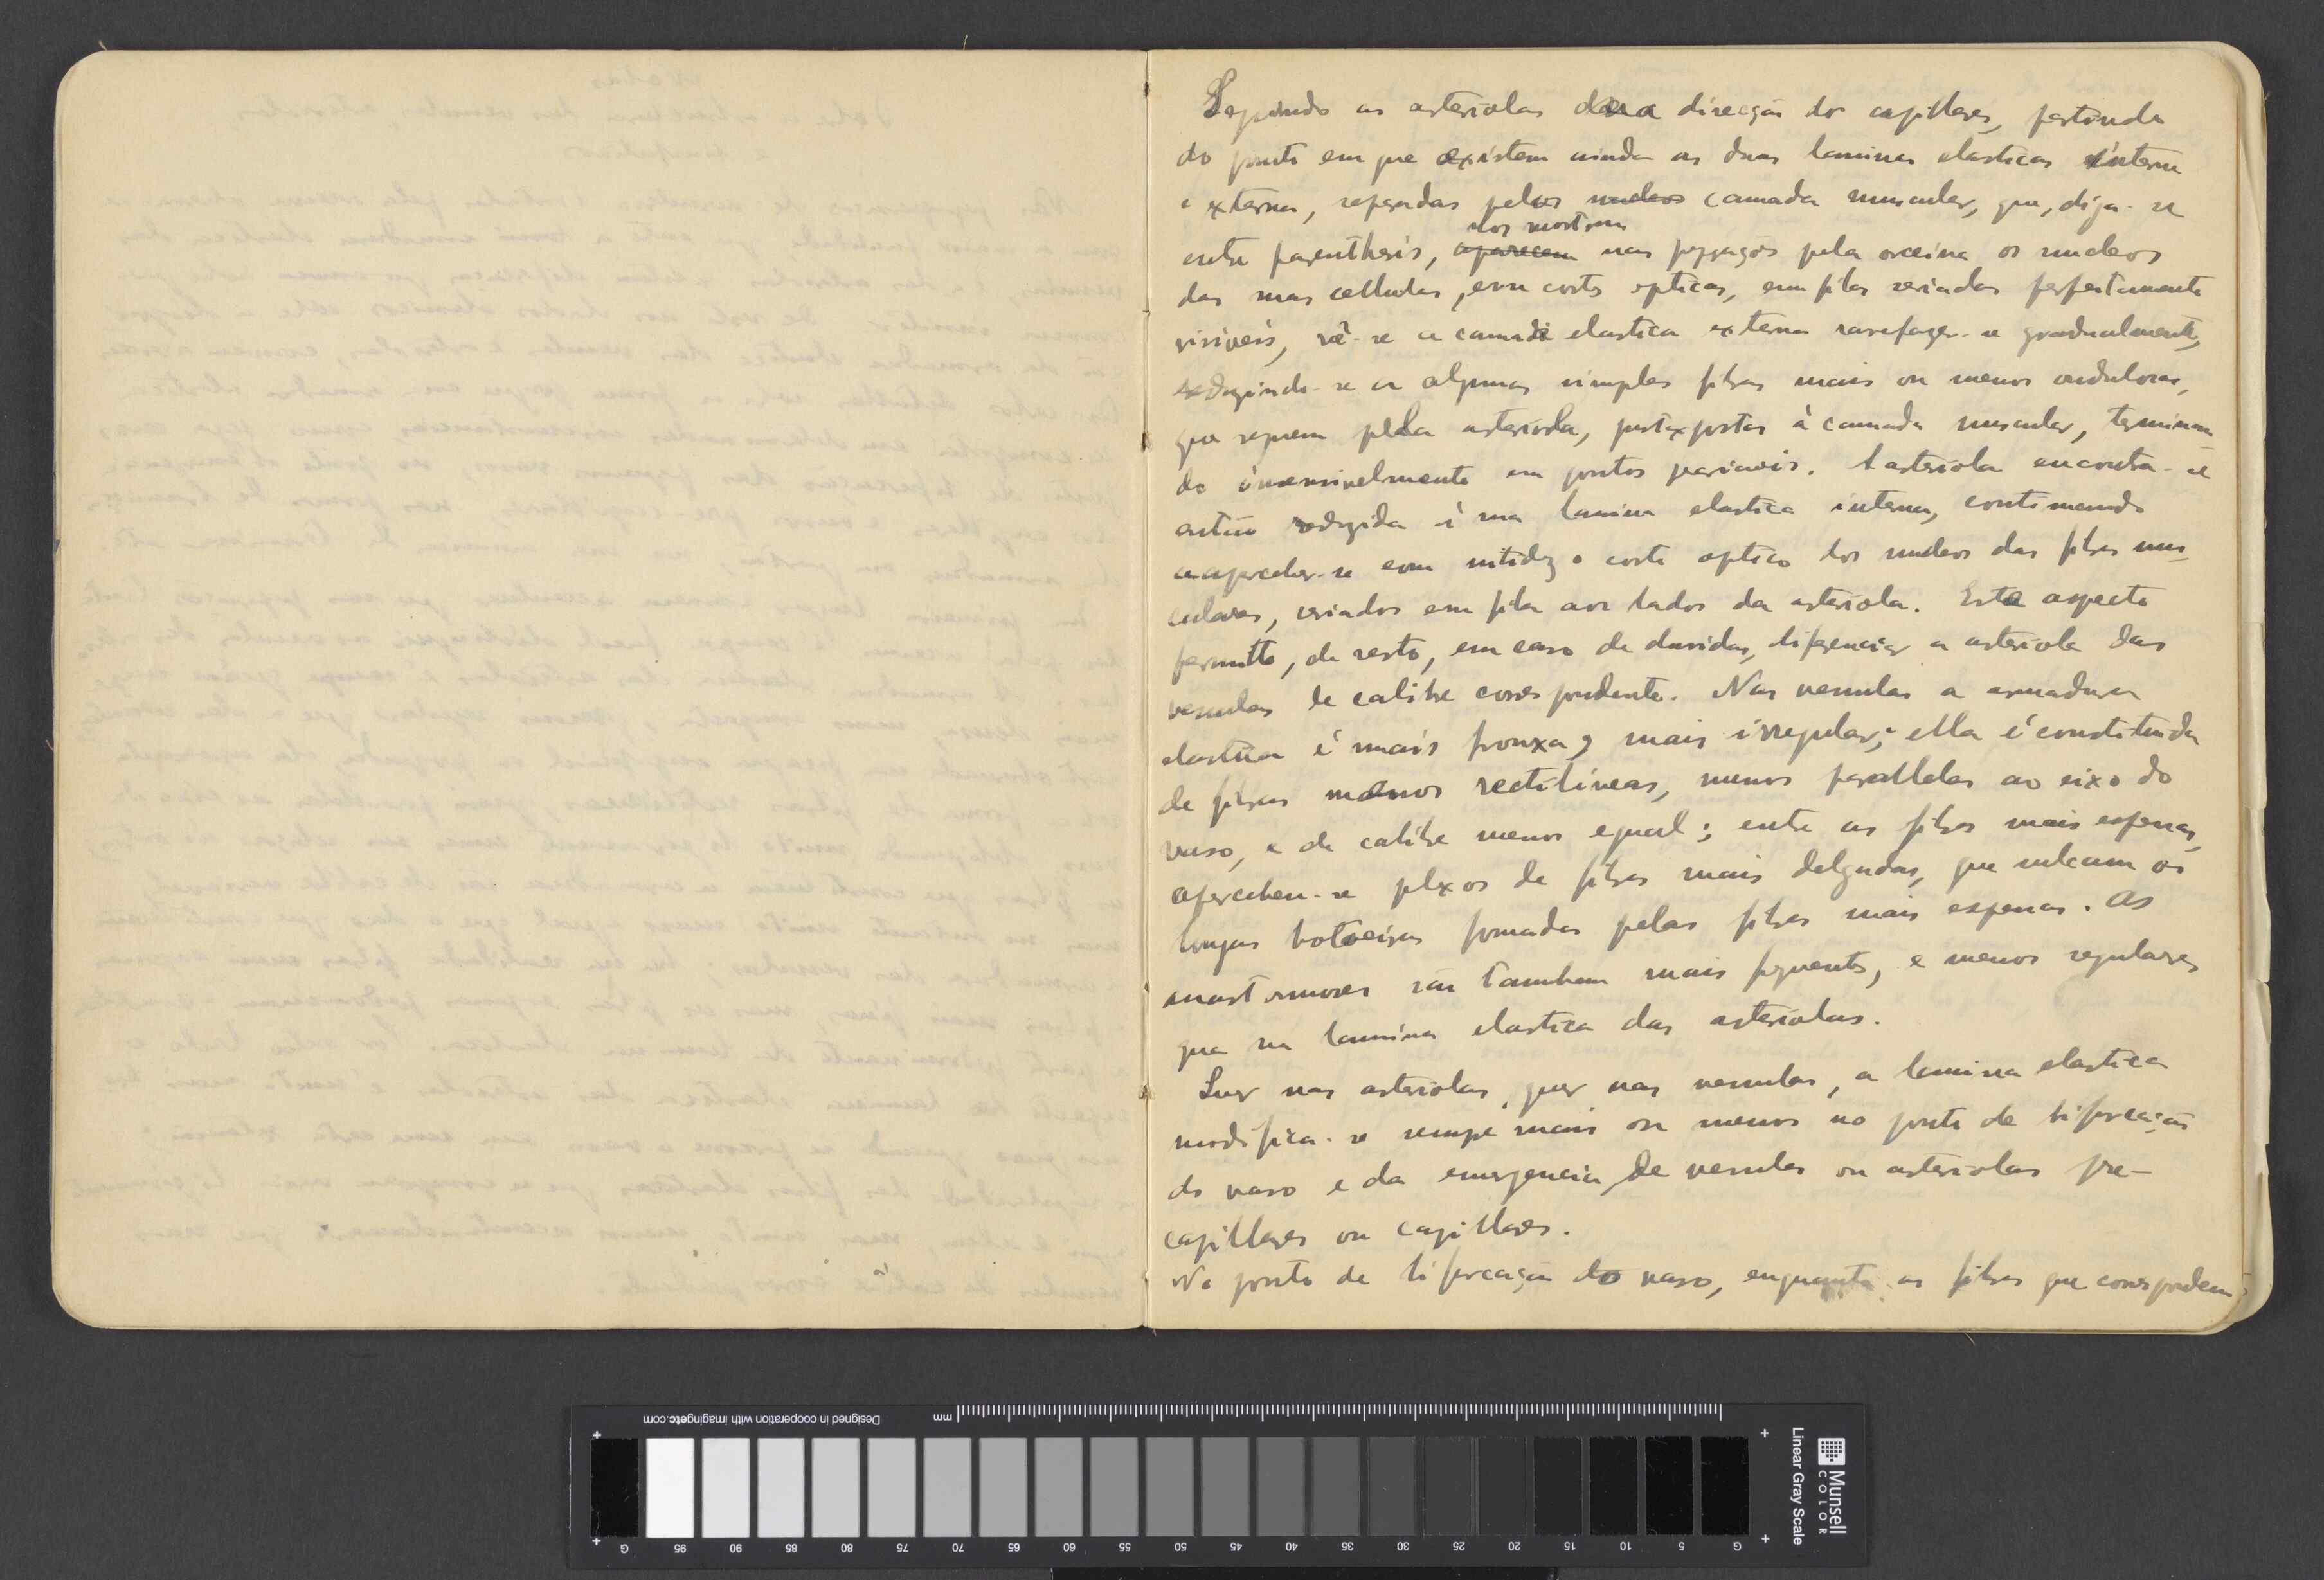 Seguindo as arteriolas na direcção dos capillares, partindo
do ponto em que existem ainda as duas laminas elasticas interna
e externa, separadas pela nucleos camada muscular, que, diga-se
nos mostram
entre parenthesis, aparecem nas preparações pela orceina os nucleos
das suas cellulas, em corte optico, em filas seriadas perfeitamente
visiveis, vê-se a camada elastica externa rarefazer-se gradualmente,
reduzindo-se a algumas simples fibras mais ou menos ondulosas,
que seguem pela arteriola, justapostas á camada muscular, terminan
do insensivelmente em pontos variaveis. A arteriola encontra-se
então reduzida á sua lamina elastica interna, continuando
a aperceber-se com nitidez o corte optico dos nucleos das fibras mus-
culares, seriados em fila aos lados da arteriola. Este aspecto
permitte, de resto, em caso de duvidas, diferenciar a arteriola das
venulas de calibre correspondente. Nas venulas a armadura
elastica é mais frouxa, mais irregular; ella é constituida
de fibras menos rectilineas, menos parallelas ao eixo do
vaso, e de calibre menos egual; entre as fibras mais espessas,
apercebem-se plexos de fibras mais delgadas, que sulcam as
longas botoeiras formadas pelas fibras mais espessas. As
anastomoses são tambem mais frequentes, e menos regulares
que na lamina elastica das arteriolas.
Quer nas arteriolas, quer nas venulas, a lamina elastica
modifica-se sempre mais ou menos no ponto de bifurcação
do vaso e da emergencia de venulas ou arteriolas pre-
capillares ou capillares.
No ponto de bifurcação do vaso, enquanto as fibras que correspondem
Designed in cooperation with imagingetc.com
mm
Munsell
COLOR
Linear Gray Scale
G 95 90 85 80 75 70 65 60 55 50 45 40 35 30 25 20 15 10 5 G